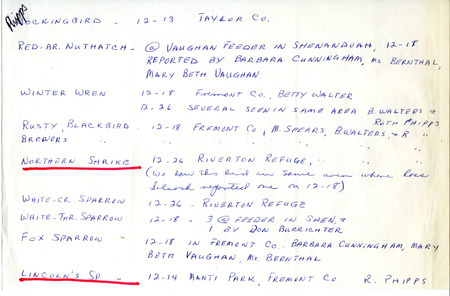 Phipps
MOCKINGBIRD - 12-13 TAYLOR CO.
RED-BR. NUTHATCH - @ VAUGHAN FEEDER IN SHENANDOAH, 12-18
REPORTED BY BARBARA CUNNINGHAM, Ms BERNTHAL,
MARY BETH VAUGHAN.
WINTER WREN 12-18 FREMONT CO., BETTY WALTER
12-26 SEVERAL SEEN IN SAME AREA B. WALTERS &
RUTH PHIPPS
RUSTY BLACKBIRD 12-18 FREMONT CO., M. SPEARS, B. WALTERS, & R "
BREWERS " " " " " "
NORTHERN SHRIKE 12-26 RIVERTON REFUGE, " "
(We saw this bird in same area where Ross
Silcock reported one on 12-18)
WHITE-CR SPARROW 12-26 - RIVERTON REFUGE
WHITE-THR. SPARROW 12-18 - 3 @ FEEDER IN SHEN. &
1 BY DON BURRICHTER
FOX SPARROW 12-18 IN FREMONT CO. BARBARA CUNNINGHAM, MARY
BETH VAUGHAN, Ms. BERNTHAL
LINCOLN'S SP - 12-14 MANTI PARK, FREMONT CO. R. PHIPPS